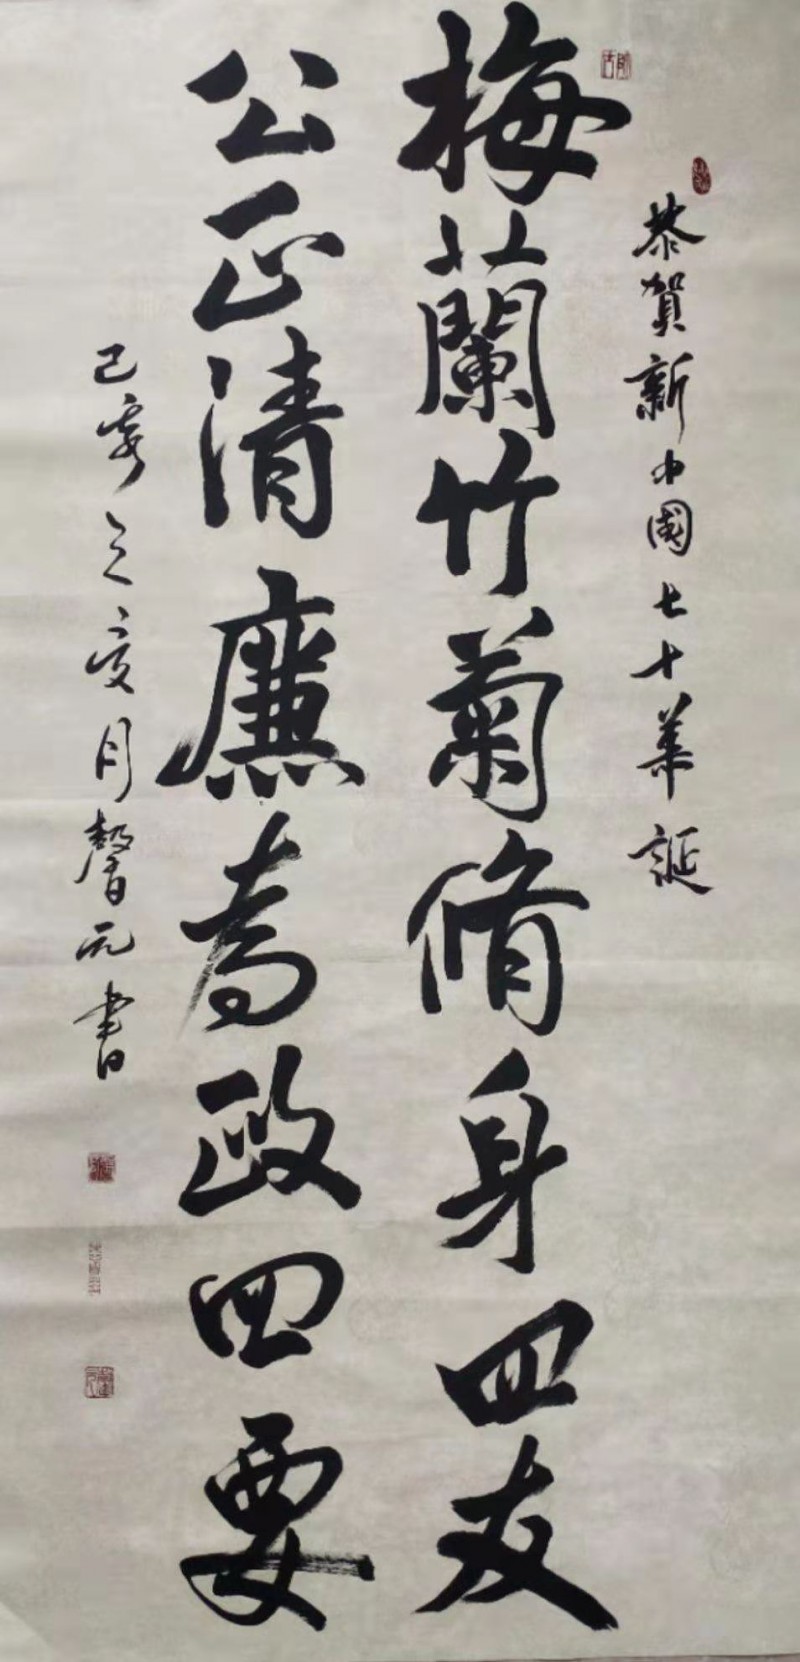 恭賀新中國七十華誕
梅蘭竹菊脩身四友
公正清廉為政四要
己亥之夏月馨元書